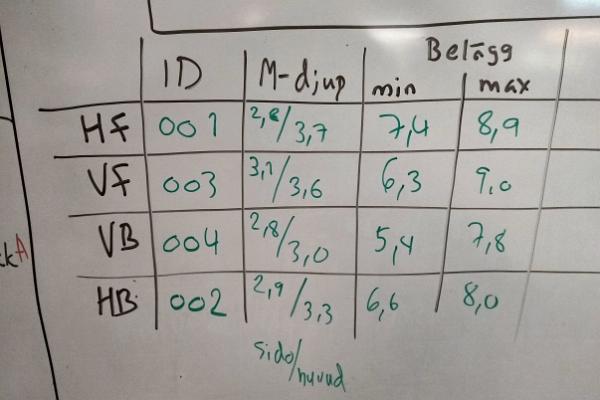 Belägg
ID M-djup min max
HF 001 2,8/3,7 7,4 8,9
VF 003 3,1/3,6 6,3 9,0
VB 004 2,8/3,0 5,4 7,8
HB 002 2,9/3,3 6,6 8,0
sido/huvud
A